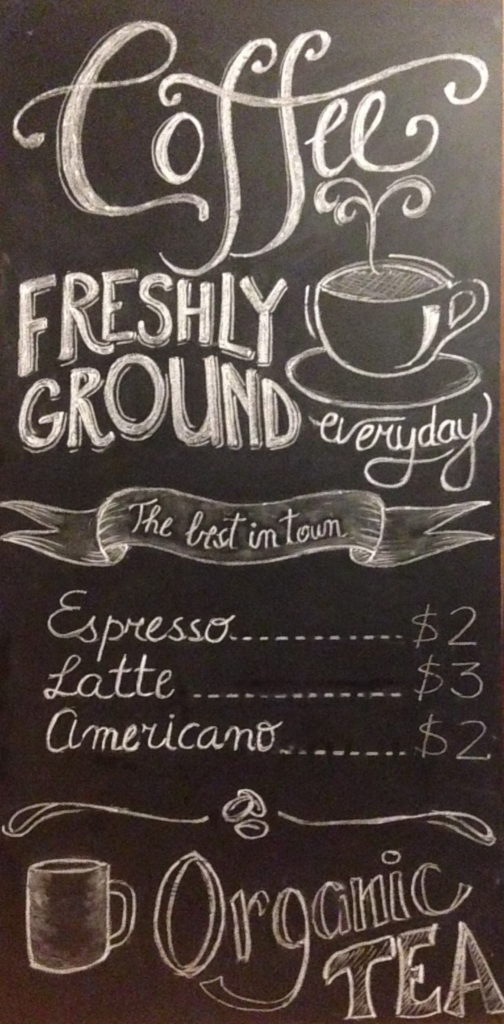 Coffee
FRESHLY
GROUND
everyday
The best in town
Espresso.............. $2
Latte .................. $3
Americano.......... $2
Organic
TEA